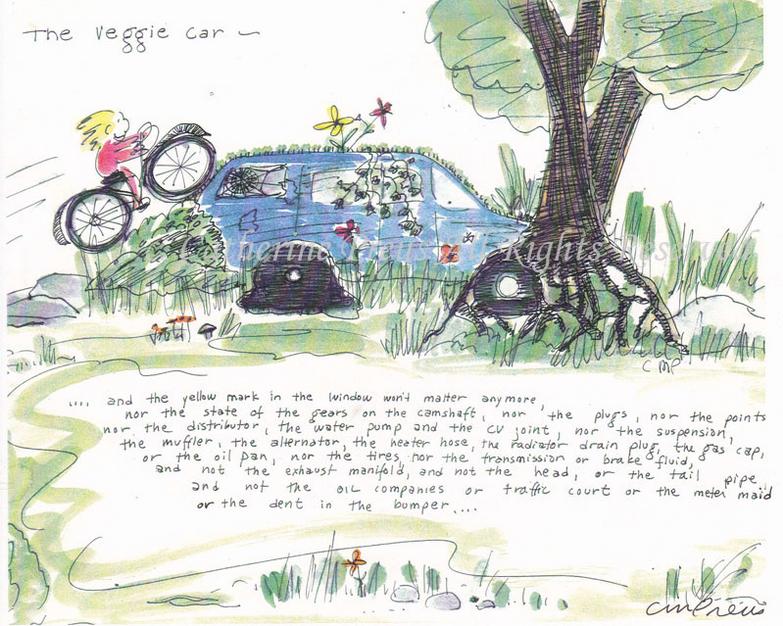 The Veggie Car ~
Catherine Preus All Rights Reserved
CMP
.... and the yellow mark in the window won't matter anymore,
nor the state of the gears on the camshaft, nor the plugs, nor the points
nor the distributor, the water pump and the CV joint, nor the suspension,
the muffler, the alternator, the heater hose, the radiator drain plug, the gas cap,
or the oil pan, nor the tires nor the transmission or brake fluid,
and not the exhaust manifold, and not the head, or the tail pipe
and not the oil companies or traffic court or the meter maid
or the dent in the bumper....
cmPreus